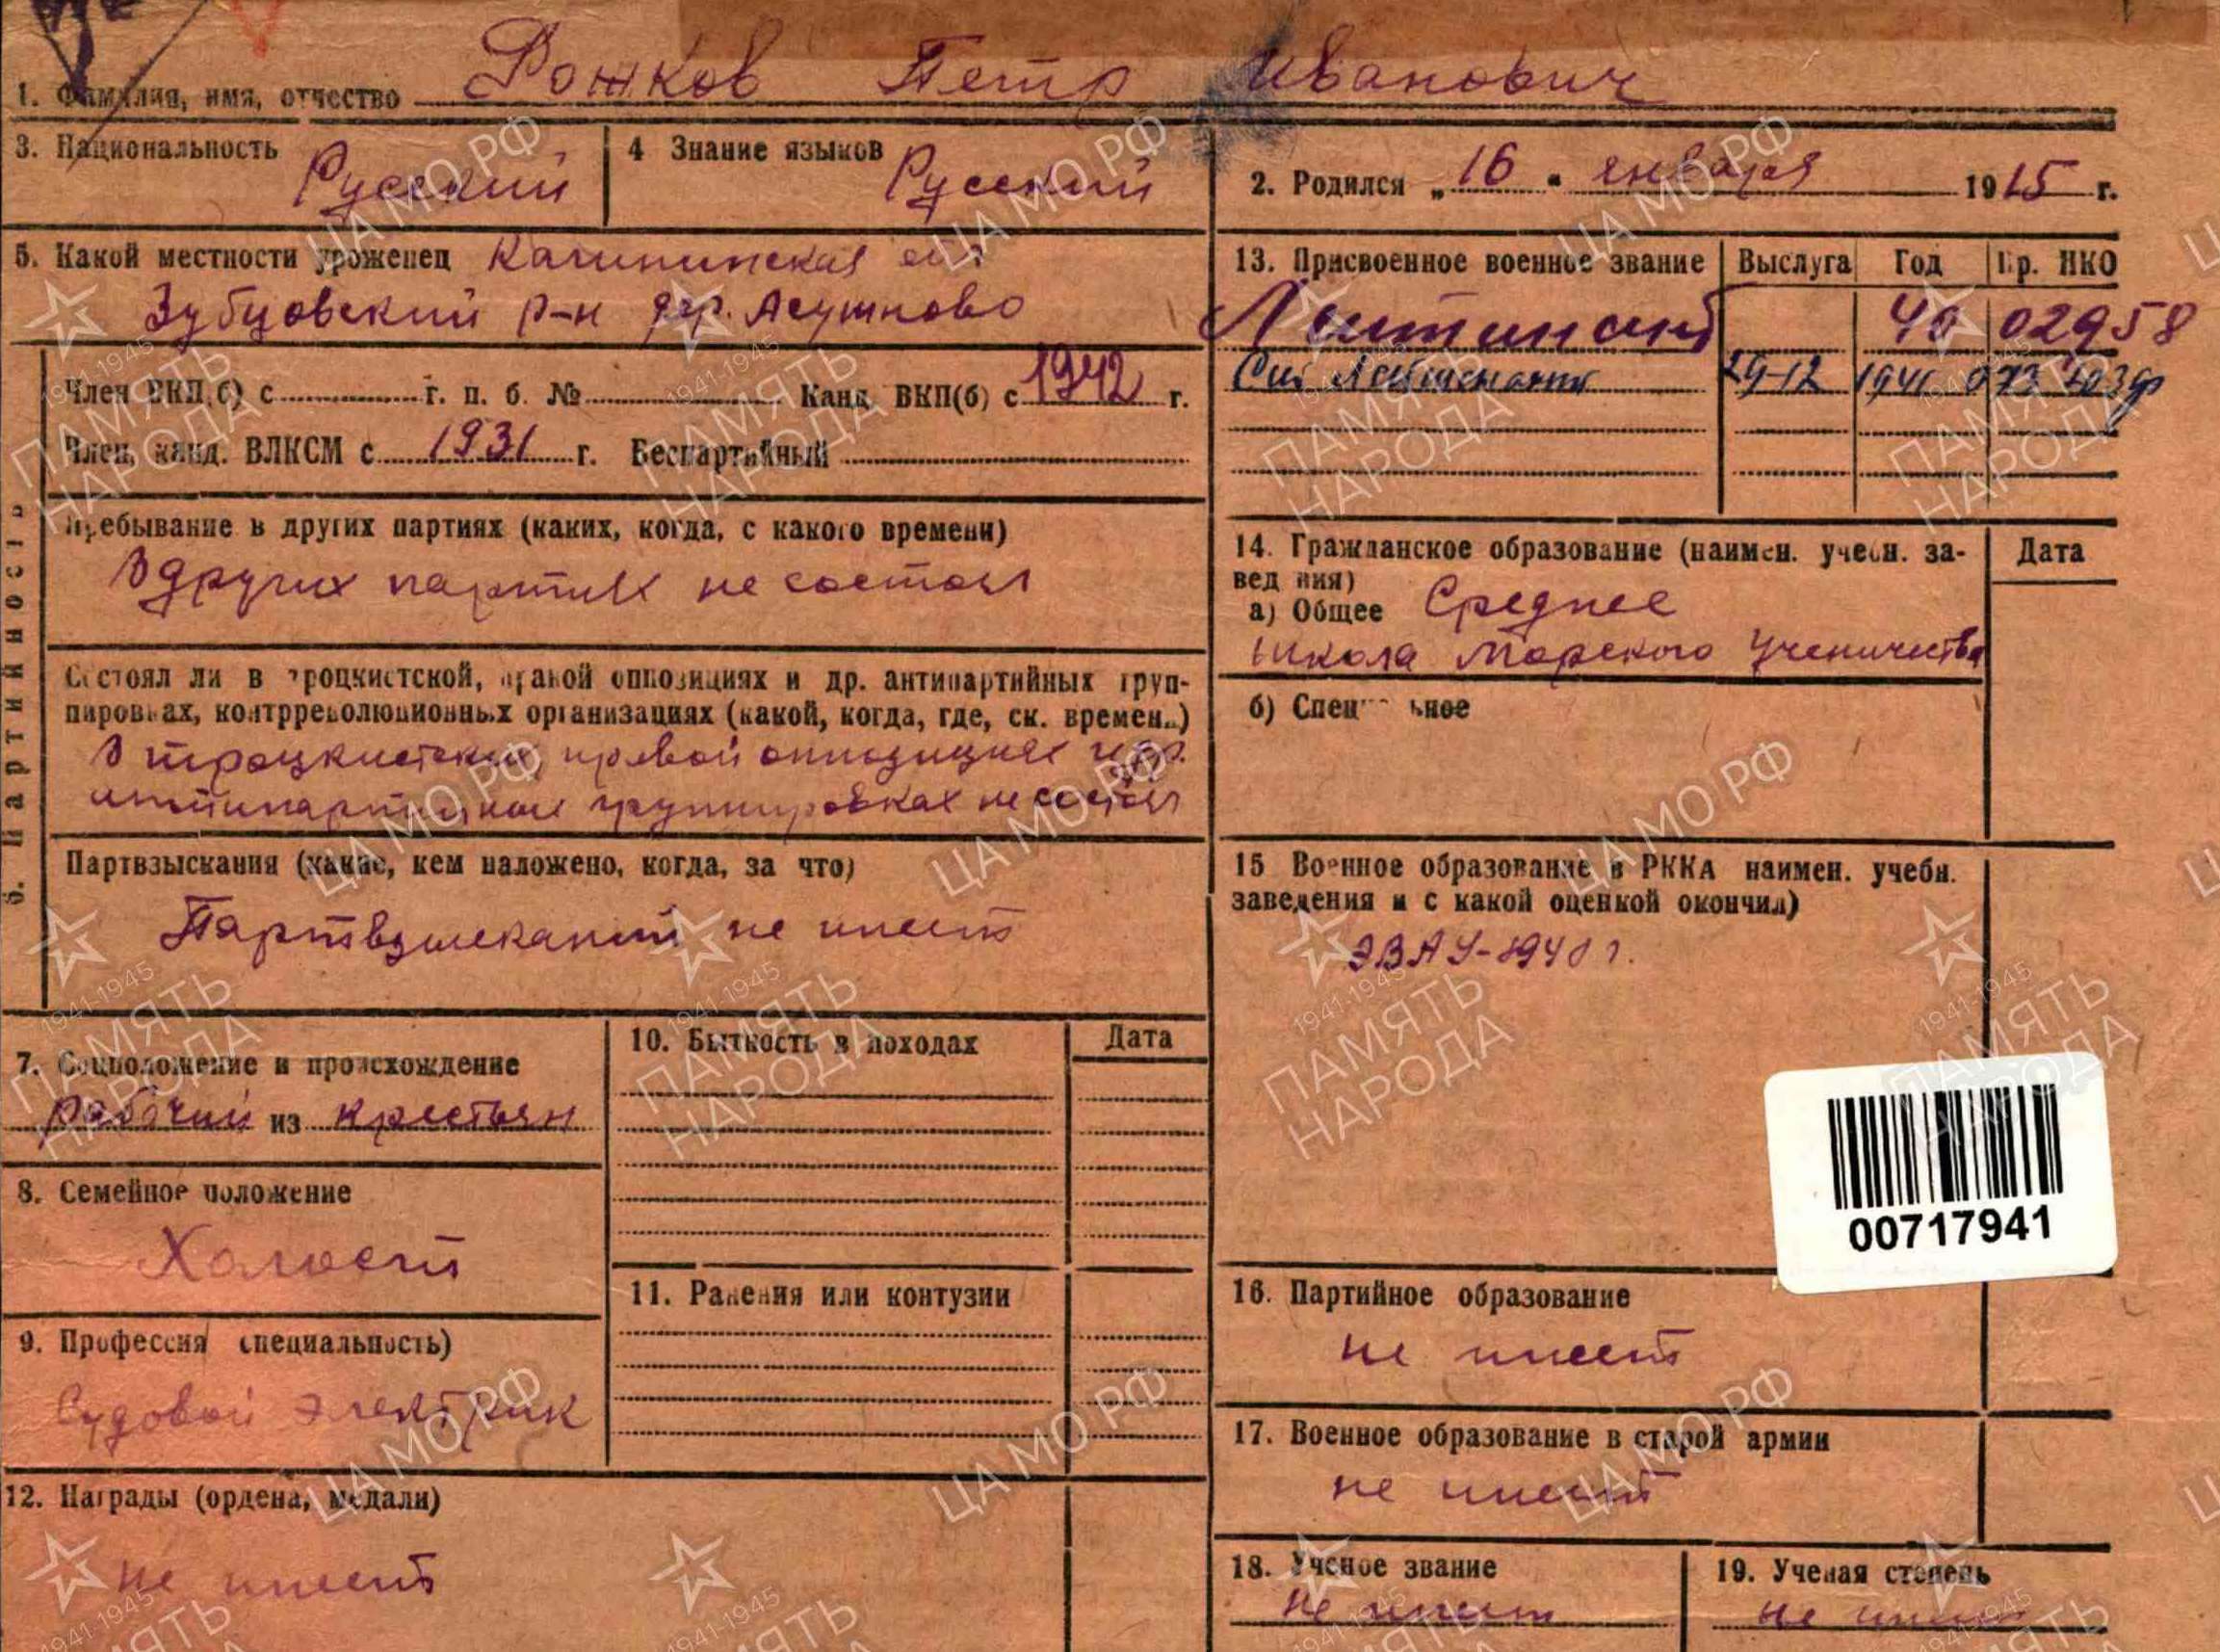 1. Фамилия, имя, отчество Рожков Петр Иванович
3. Национальность Русский
4 Знание языков Русский
2. Родился „ 16 " января 1915 г.
5. Какой местности уроженец Калининская обл
Зубцовский р-н дер. Асушково
6. Партийность
Член ВКП(б) с г. п. б. № Канд. ВКП(б) с 1942 г.
Член, канд. ВЛКСМ с 1931 г. Беспартийный
Пребывание в других партиях (каких, когда, с какого времени)
В других партиях не состоял
Состоял ли в троцкистской, правой оппозициях и др. антипартийных груп-
пировках, контрреволюционных организациях (какой, когда, где, ск. времен.)
В троцкистских, правой оппозициях и др.
антипартийных группировках не состоял
Партвзыскания (какие, кем наложено, когда, за что)
Партвзысканий не имеет
7. Соцположение и происхождение
рабочий из крестьян
8. Семейное положение
Холост
9. Профессия специальность)
Судовой электрик
10. Бытность в походах Дата
11. Ранения или контузии
12. Награды (ордена, медали)
не имеет
13. Присвоенное военное звание Выслуга Год Пр. НКО
Лейтенант 40 02958
Лейтенант 29-12 1941
14. Гражданское образование (наимен. учебн. за- Дата
ведения)
а) Общее Среднее
Школа Морского Ученичества
б) Специальное
15 Военное образование в РККА наимен. учебн.
заведения и с какой оценкой окончил)
ЭВАУ-1940 г.
00717941
16. Партийное образование
не имеет
17. Военное образование в старой армии
не имеет
18. Ученое звание
не имеет
19. Ученая степень
не имеет
ЦА МО РФ
1941-1945
ПАМЯТЬ
НАРОДА